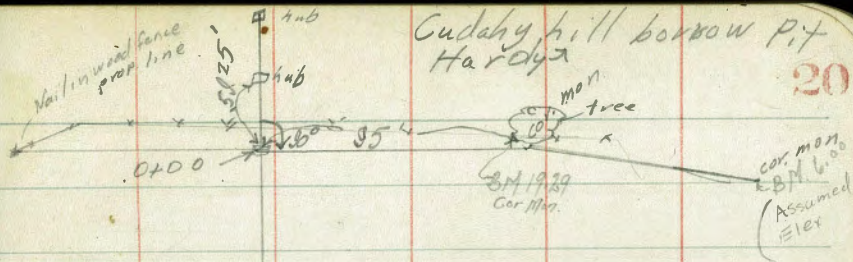 Cudahy hill borrow Pit
Hardy
20
hub
Nail in wood fence
prop line
hub
mon
tree
90°
95'
0+00
BM 19.29
Cor Mon.
cor. mon
BM 6.00
Assumed
Elev